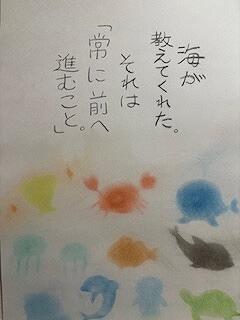 海が
教えてくれた。
それは
「常に前へ
進むこと。」